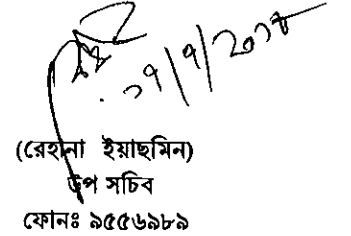 ১৭/৭/২০১৮
(রেহানা ইয়াছমিন)
উপ সচিব
ফোনঃ ৯৫৫৬৯৮৯